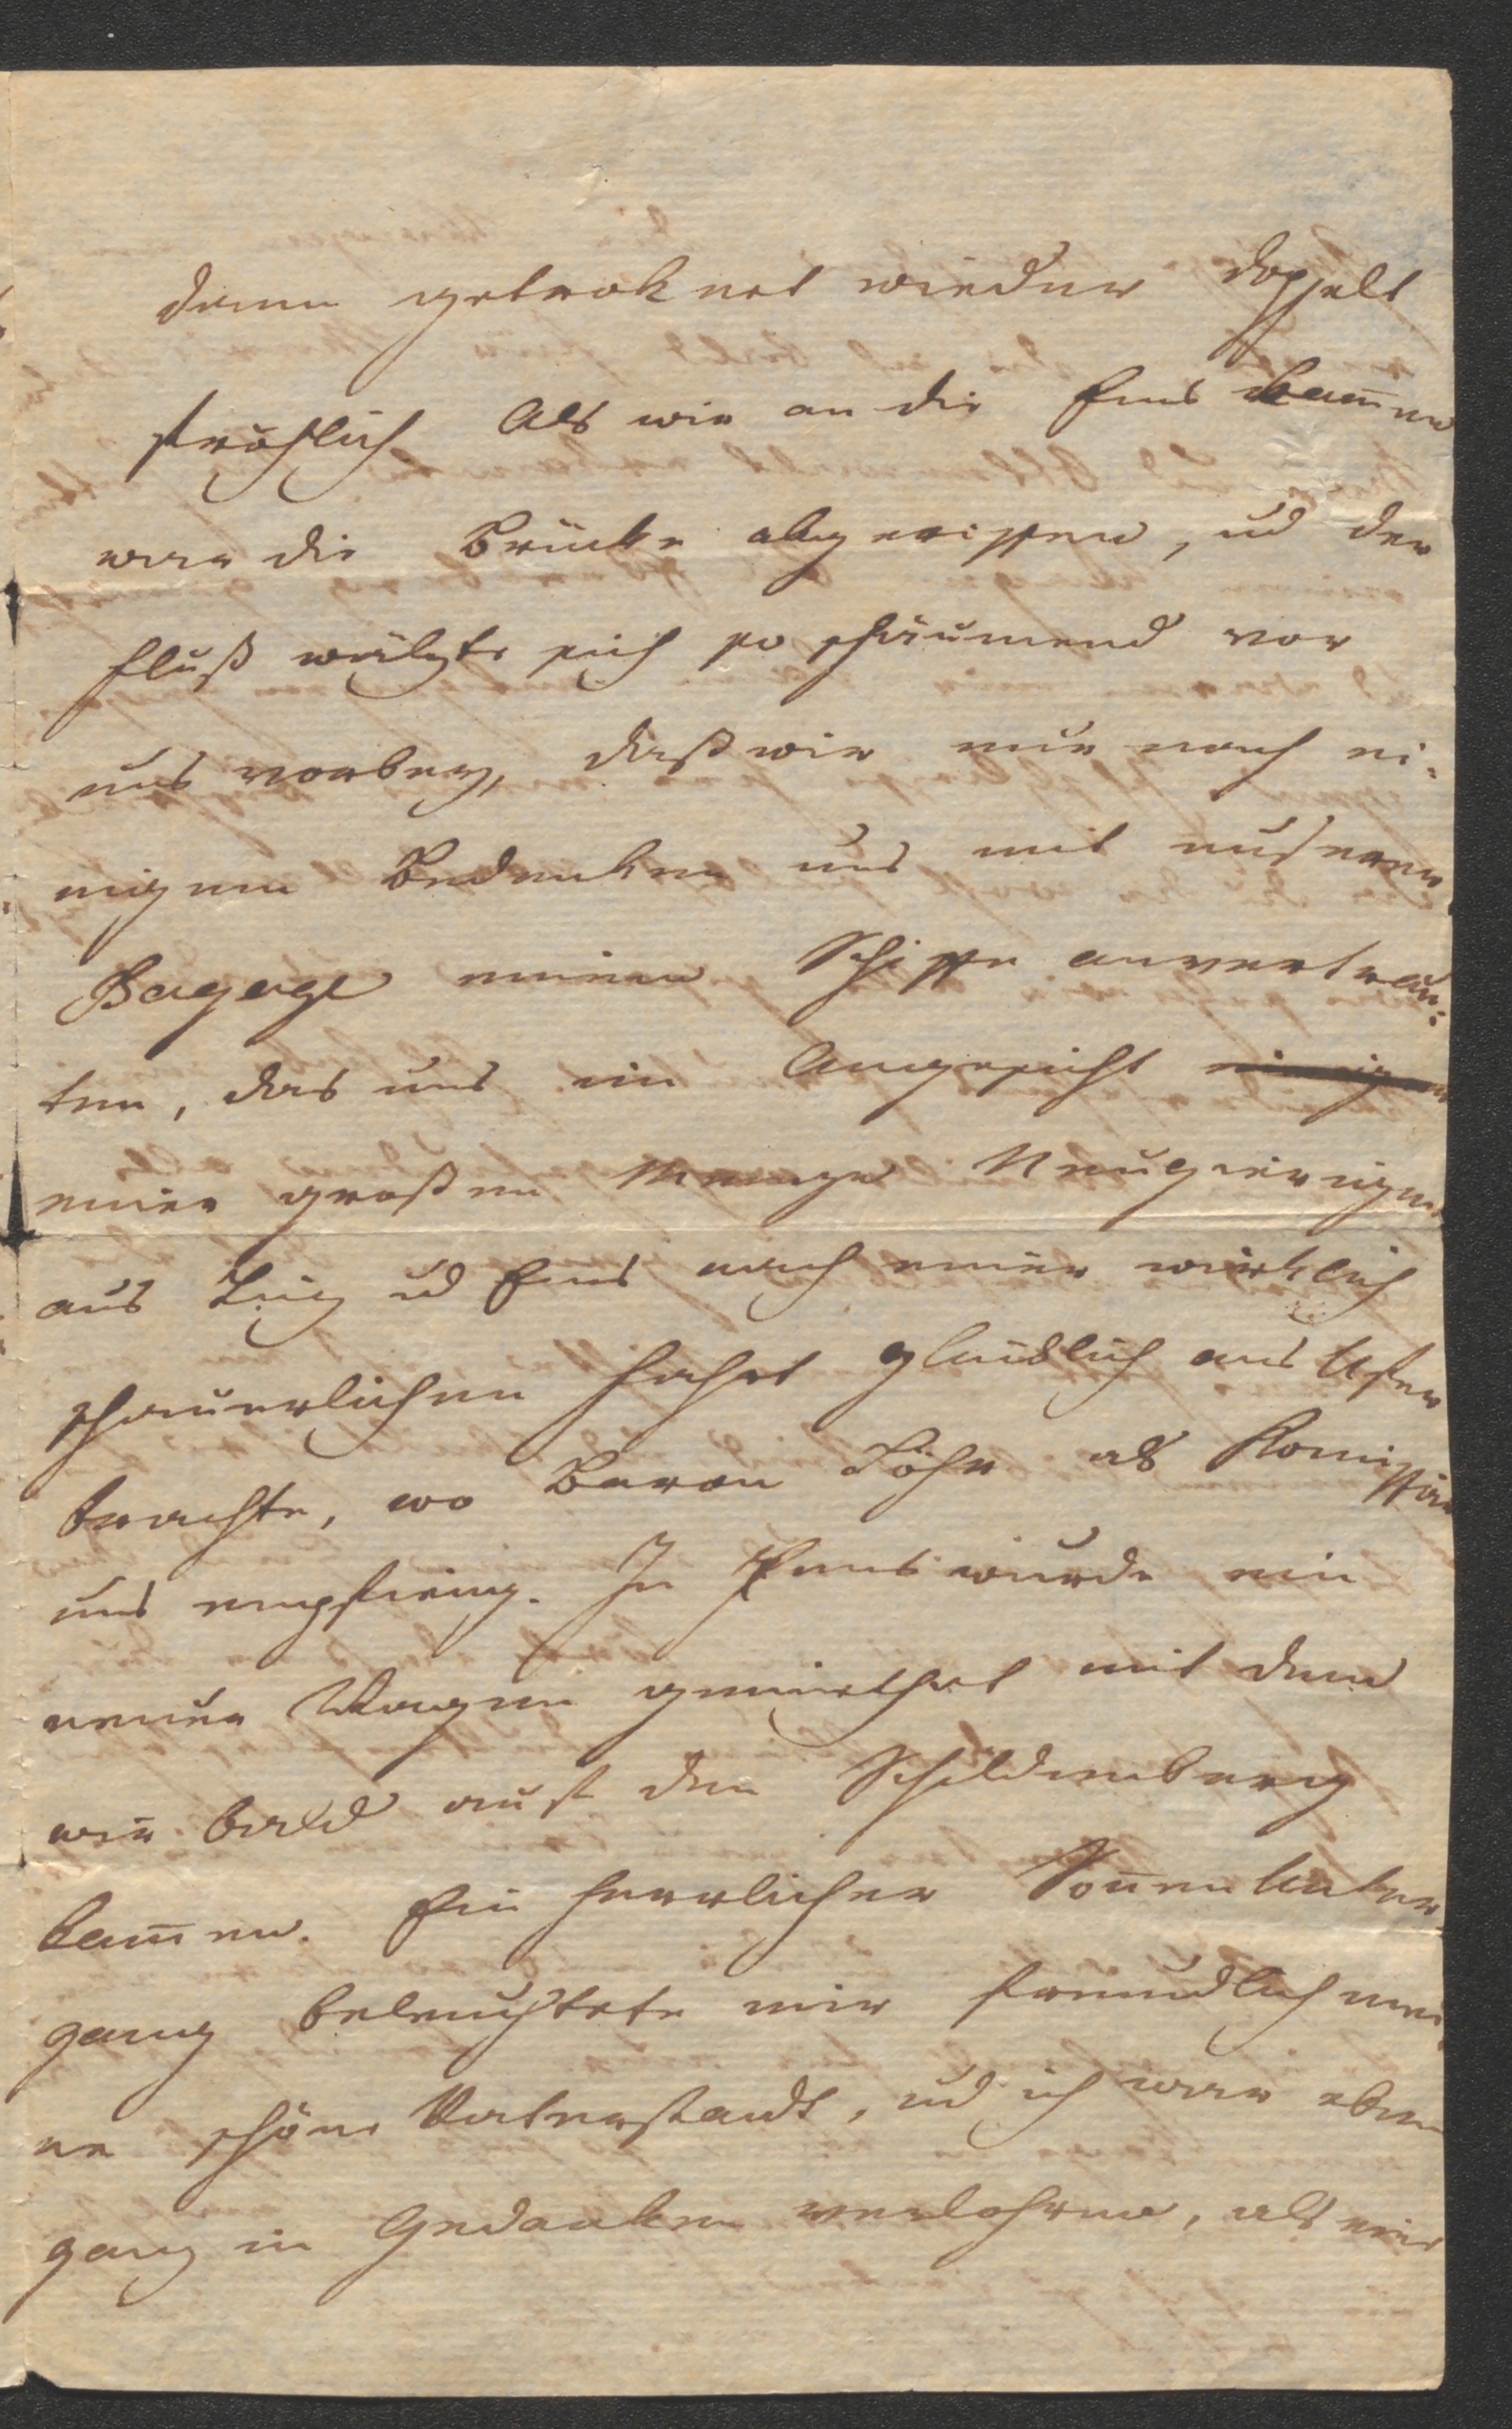 dann getroknet wieder doppelt
fröhlich Als wir an die Ens kam̅en
war die Brücke abgerissen, ud der
Fluß wälzte sich so schäumend vor
uns vorbey, daß wir nur nach ei-
nigem Bedenken uns mit unserer
Bagage einem Schiffe anvertrau-
ten, das uns im Angesicht einiger
einer großen Menge Neugieriger
aus Linz ud Ens nach einer wirklich
schauerlichen Fahrt glücklich ans Ufer
brachte, wo Baron Löhr als Komissär
uns empfieng. In Enns wurde ein
neuer Wagen gemiethet mit dem
wir bald auf den Schildenberg
kam̅en. Ein herrlicher Son̅en Unter-
gang beleuchtete mir freundlich mei-
ne schöne Vaterstadt, ud ich war eben
ganz in Gedanken verlohren, als wir